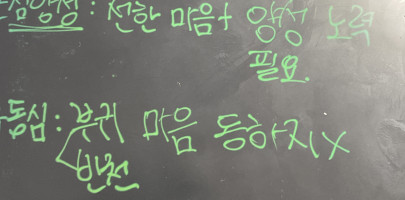 심양성 : 전한 마음+ 양성 노력
필요.
부동심 : 부귀 마음 동하지X
빈천